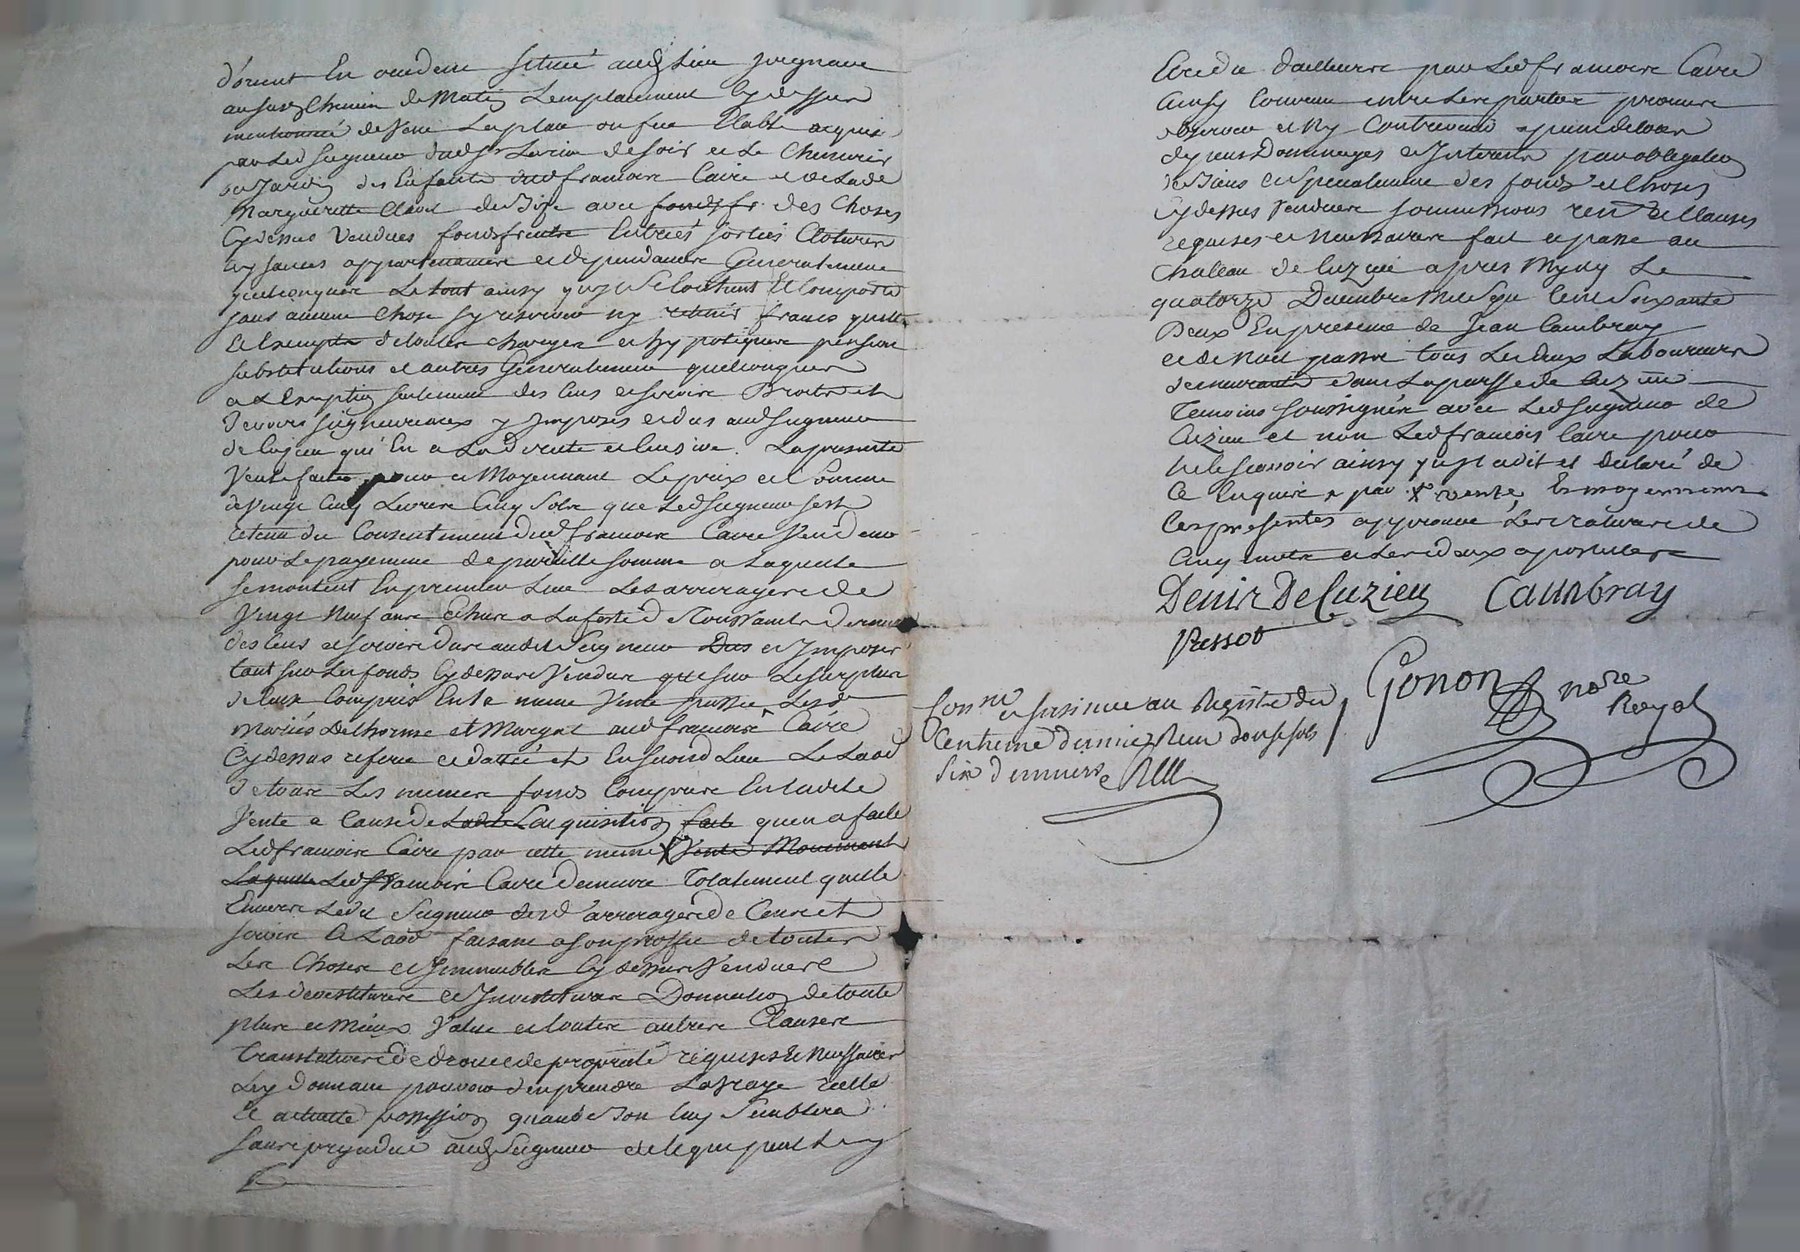 d'orient En ou dem situé aud. Lieu joignant
au susd. Chemin de Matin L'emplacement Cy dessus
mentionné de Vane Le plan ou fut Etably acquis
par Led. Seigneur dud. Sr de soir et Le Chenevier
ou Jardin des Enfants dud. francois Caire et de Lade
Margueritte Clavel de Bize avec fonds fr. des Choses
Cy dessus Vendues fonds fruitre Entrées sorties Clotures
aysances appartenances et dependances Generalement
quelconques Le tout ainsy qu'il se Contient Et Comporte
sans aucune Chose sy reserver ny retenir franc quitte
Et Exempte de toutes charges et hypoteques pension
substitutions et autres Generalement quelconques
a L'Exception seulement des Cens et servis Droits et
devoirs seigneuriaux y Imposés et dus aud. seigneur
de Cuzieu qui En a La directe et Censive. La presente
Vente faitte pour et Moyennant Le prix et Somme
de Vingt Cinq Livres Cinq Sols que Led. Seigneur s'est
retenu du Consentement dud. francois Caire Vendeur
pour Le payement de pareille somme a Laquelle
se montent En premier Lieu Les arrerages de
Vingt Neuf ans Echus a La feste de Toussaints derniere
des Cens et servis dus audit Seigneur Dus et Imposés
tant sur Les fonds Cy dessus Vendus que sur Le surplus
de Ceux Compris En la meme Vente passée Lesd.
Mariés Delhorme et Margat aud. francois Caire
Cy dessus referée et dattée et En second Lieu Le Laod
de tous Les memes fonds Compris En ladite
Vente a Cause de Ladite L'acquisition faite qu'en a faite
Led. francois Caire par cette meme X Vente Mouvement
Laquelle Led. francois Caire demeure Totalement quitte
Envers Ledit Seigneur desd. arrerages de Cens et
servis et Laod faisant a son proffit de toutes
Les Choses et Immeubles Cy dessus Vendues
Les devestitures et Investitures Donnation de toute
plus et mieux Value et toutes autres Clauses
Translatives de droit et de propriété requises Et Necessaires
Luy donnant pouvoir d'en prendre La Vraye reelle
Et actuelle possession quand et Bon Luy Semblera
sans prejudice aud. Seigneur de ce qui peut Luy
Etre du d'ailleurs par Led. francois Caire
Ainsy Convenu entre Les parties promis
observer et Ny Contrevenir a peine de tous
depens Dommages et Interests par obligation
de Biens et specialement des fonds et Choses
Cy dessus Vendues soumissions ren. et Clauses
requises et Necessaires fait et passé au
Chateau de Cuzieu apres Mydy Le
quatorze Decembre Mil Sept Cent Soixante
Deux En presence de Jean Cambray
et de Noel passot tous Les deux Laboureurs
demeurants dans La parroisse de Cuzieu
Temoins soussignés avec Led. Seigneur de
Cuzieu et non Led. francois Caire pour
ne le scavoir ainsy qu'il a dit et declaré de
Ce Enquis + par X Vente, Et moyennant
Ces presentes approuvé Les ratures de
Cinq mots et Les deux apostilles
Denis De Cuzieu Cambray
Pessot
Gonon nore
Royal
Conné et Insinué au Registre du
Centieme denier Reçu douse sols
Six deniers